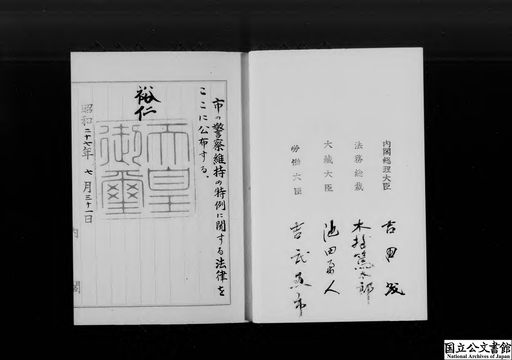 内閣總理大臣 吉田茂
法務總裁 木村篤太郎
大藏大臣 池田勇人
勞働大臣 吉武惠市
市の警察維持の特例に関する法律を
ここに公布する。
裕仁
天皇
御璽
昭和二十七年七月三十一日
内閣
国立公文書館
National Archives of Japan